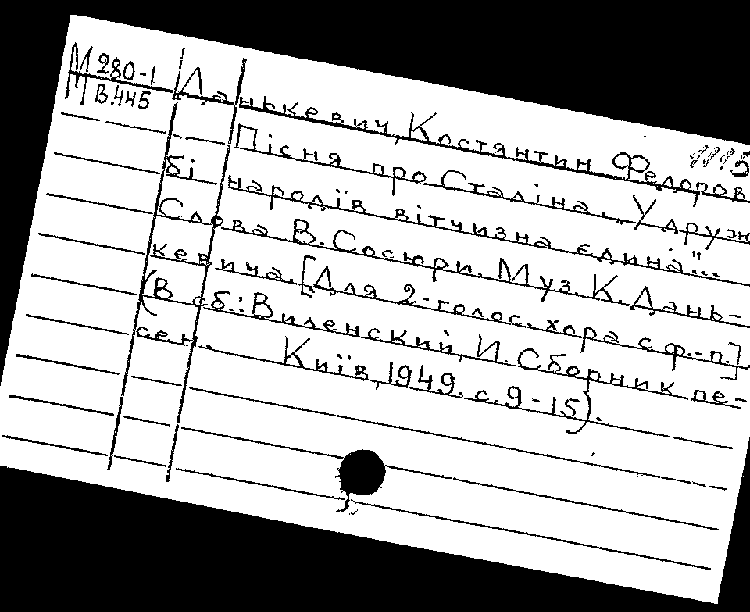 М 280-1
В.445
1115
Данькевич, Костянтин Федоров
Пісня про Сталіна. „У друж
бі народів вітчизна єдина"...
Слова В. Сосюри. Муз. К. Дань-
кевича. [Для 2-голос. хора с ф.-п.]
(В сб.: Виленский, И. Сборник пе-
сен. Київ, 1949. с. 9-15).